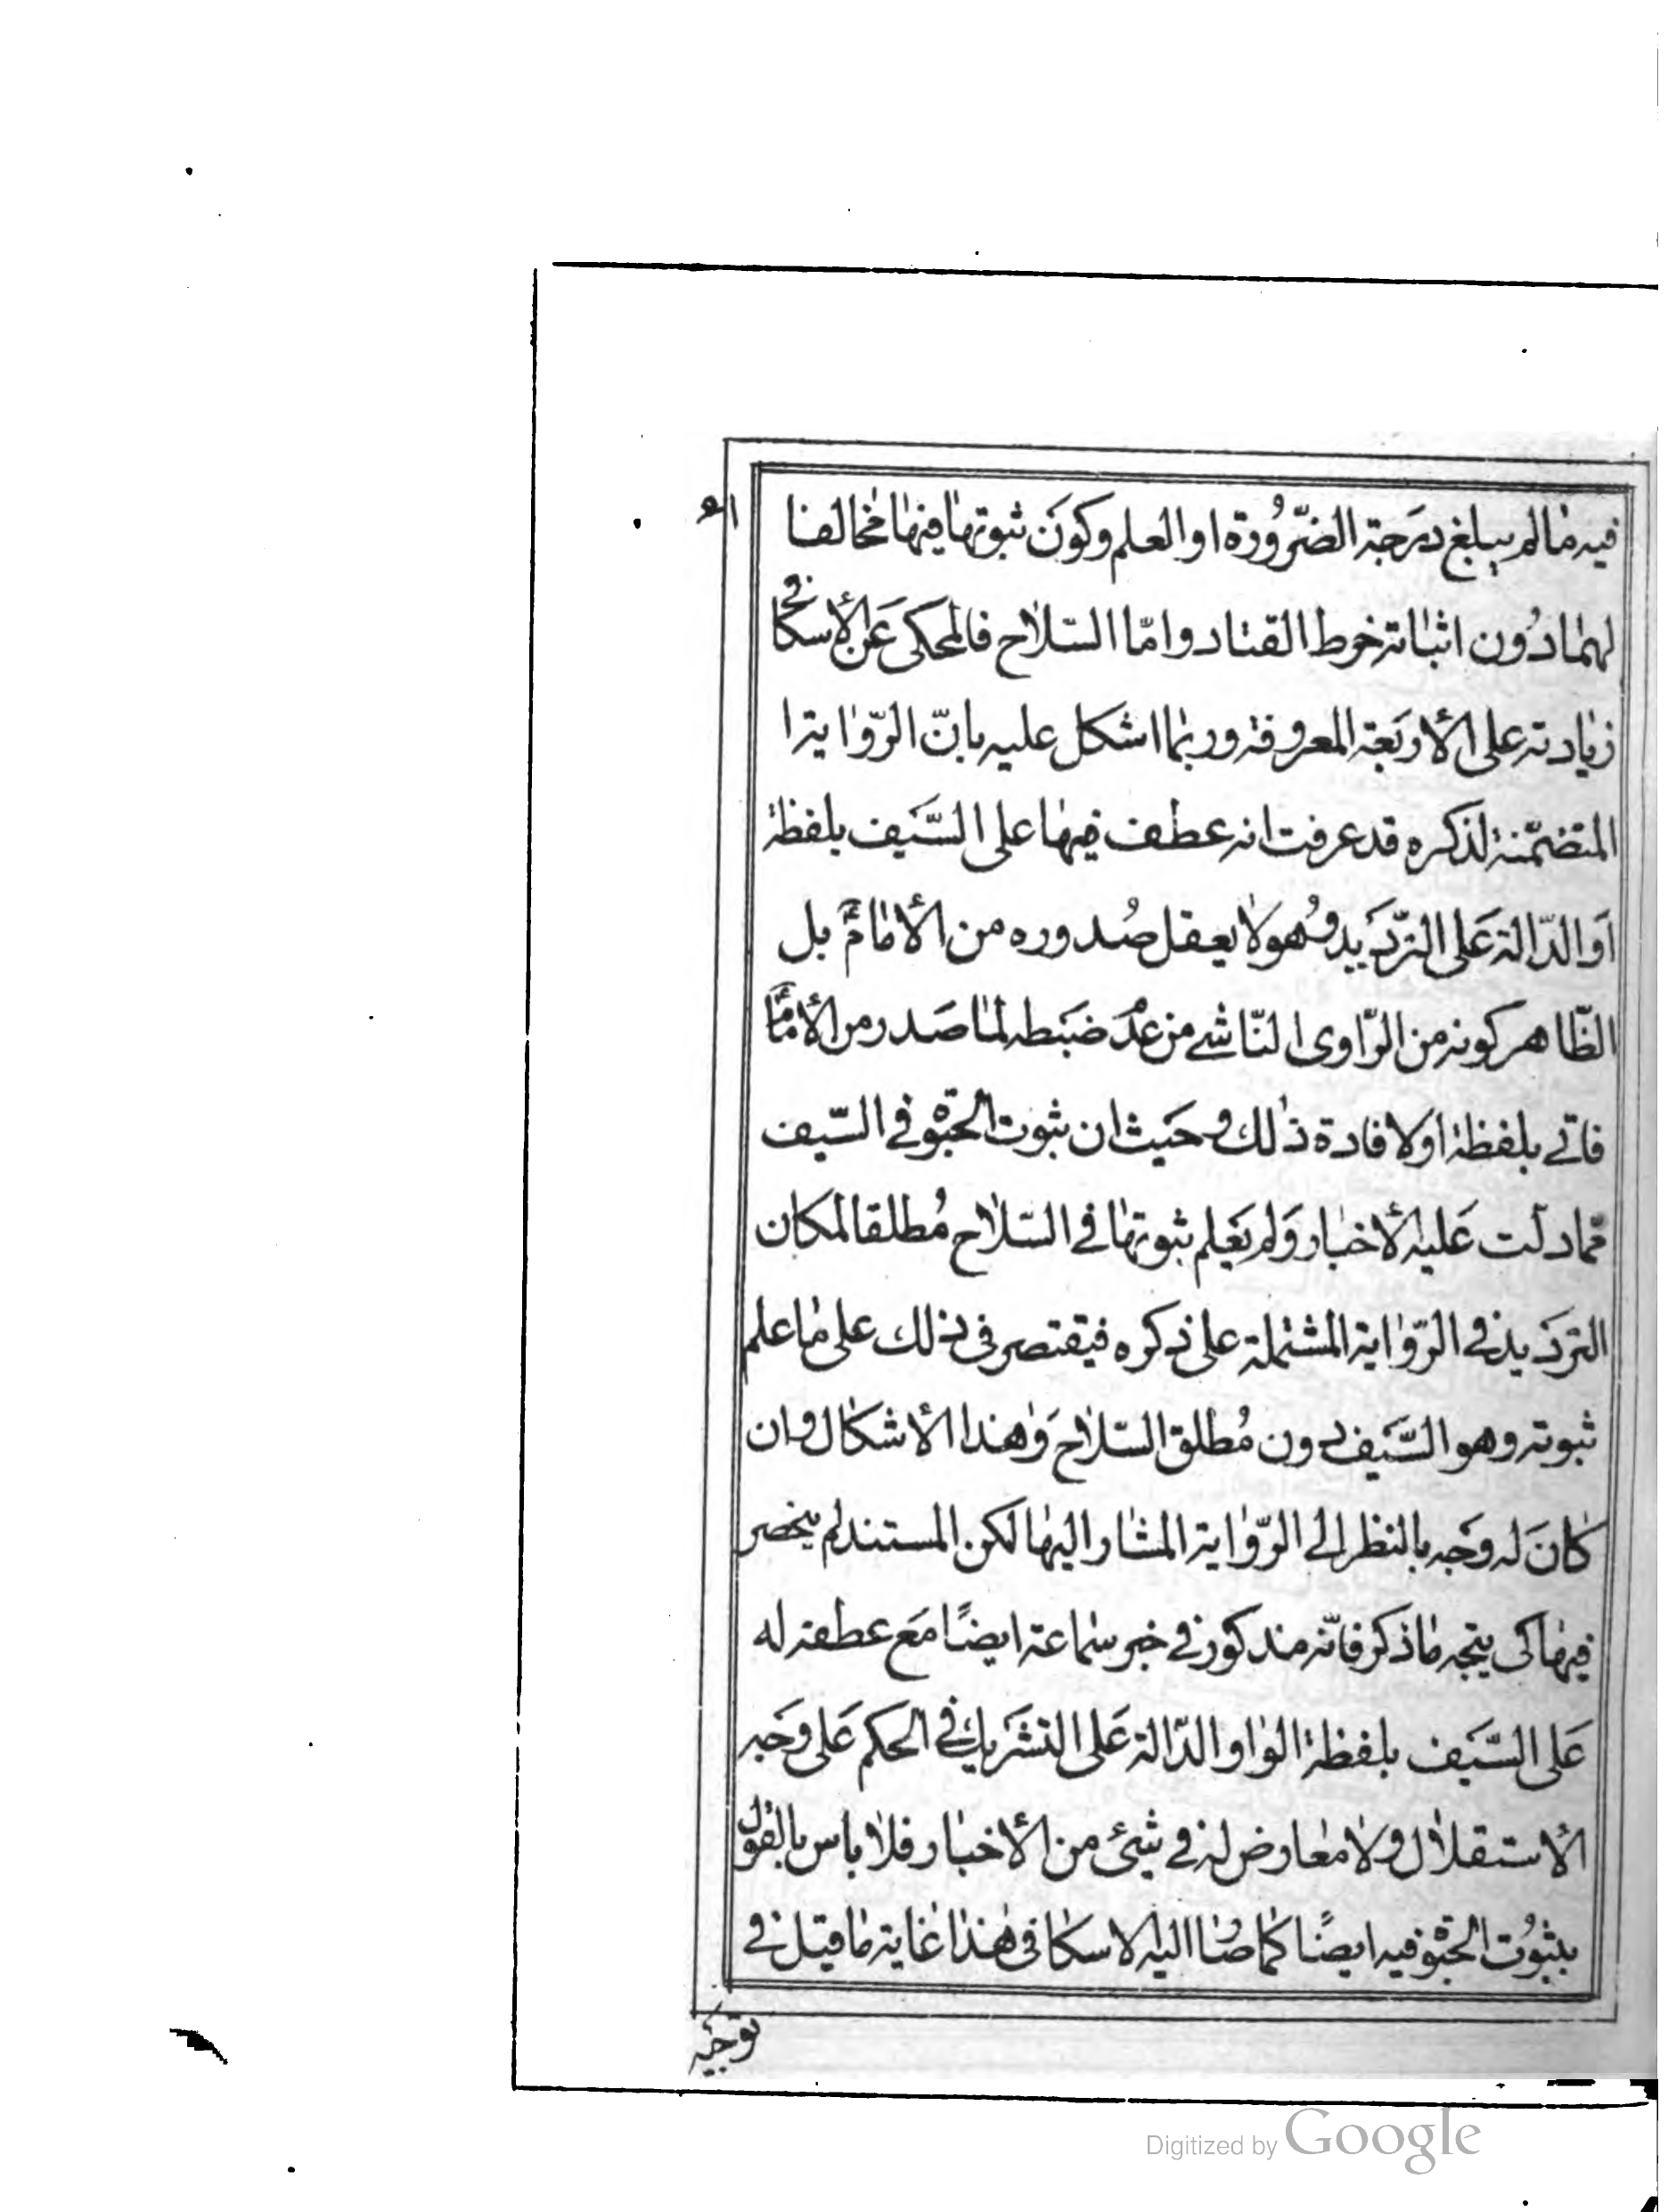 فيه مٰا لم يبلغ درَجة الضّرُورة او العلم وكونَ ثبوتهٰا فيهٰا مخٰالفا
لهمٰا دُون اثبٰاته خوط القتاد وامّا السّلاٰح فالمحكى عَن الأسكٰافى
زيٰادته على الأربَعة المعروفة وربمٰا اشكل عليه بانّ الرّوٰاية ا
المتضمّنة لذكره قد عرفت انه عطف فيهٰا على السَّيف بلفظة
اَو الدّالة عَلى الترّديَد وهُو لاٰ يعقل صُدوره من الأمٰامؑ بل
الظّاهر كونه من الرّاوى النّاشے من عدُم ضبَطه لمٰا صَدر من الأمٰامؑ
فاتے بلفظة او لافادة ذٰلك وحيَث ان ثبوت الحبوْة فے السّيف
ممّا دلّت عَليه الأخبٰار وَلم يَعلم ثبوتهٰا فے السّلاٰح مُطلقا لمكان
الترديَد فے الرّوٰاية المشتملة على ذكره فيقتصر فى ذلك على مٰا علم
ثبوته وهو السَّيَف دون مُطلق السّلاٰح وَهٰذا الأشكٰال وان
كٰانَ له وَجه بالنظر الے الرّوٰاية المشٰار اليهٰا لكن المستند لم ينحصر
فيهٰا كى يتجه مٰا ذكر فانّه مذكور فے خبر سمٰاعة ايضًا مَع عطفه له
عَلى السَّيَف بلفظة الوٰاو الدّالة عَلى التشَريك فے الحكم عَلى وجَه
الأستقلاٰل ولاٰ معٰارض له فے شيئ من الأخبٰار فلاٰ باس بالقول
بثبُوت الحبوْة فيه ايضًا كمٰا صٰار اليه الاسكٰافى هٰذا غٰاية مٰا قيل فے
توجيَه